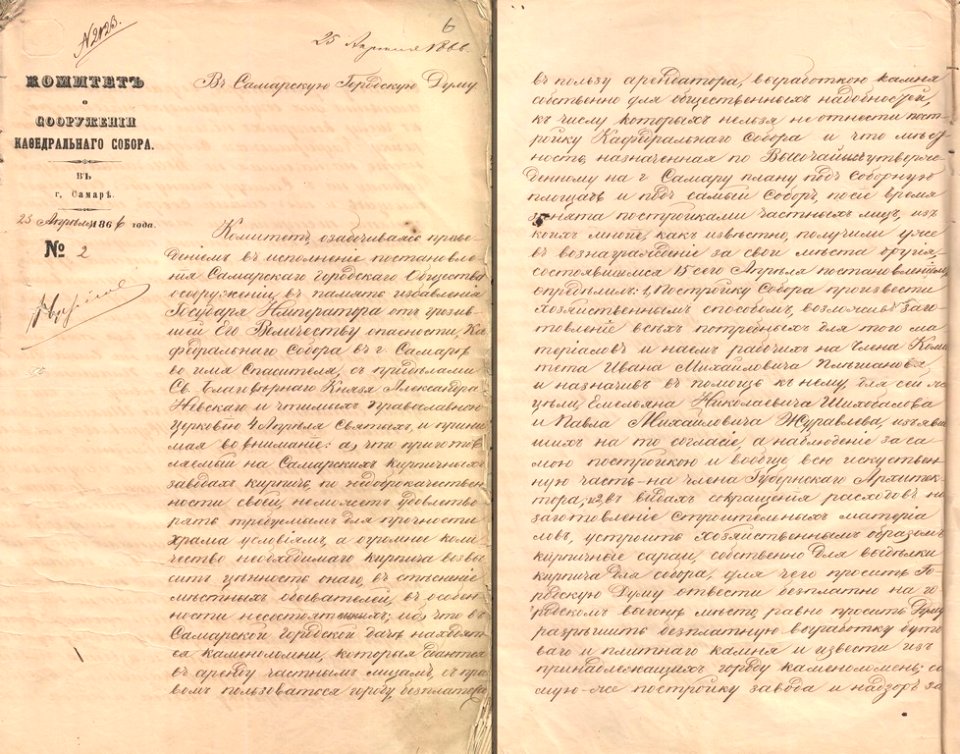 №2123.
6
25 Апреля 1866
КОМИТЕТЪ
о
СООРУЖЕНІИ
КАѲЕДРАЛЬНАГО СОБОРА.
ВЪ
г. Самарѣ.
25 Апрѣля 1866 года.
№ 2
Въ Самарскую Городскую Думу
Комитетъ, озабочиваясь приве-
деніемъ въ исполненіе постановле-
нія Самарскаго Городскаго Общества
сооруженіи, въ память избавленія
Государя Императора отъ грозив-
шей Его Величеству опасности, Ка-
федральнаго Собора въ г. Самарѣ
во имя Спасителя, съ придѣлами
Св. Благовѣрнаго Князя Александра
Невскаго и чтимыхъ Православною
церковію 4 Апрѣля Святыхъ, и прини-
мая во вниманіе: а, что приготов-
ляемый на Самарскихъ кирпичныхъ
заводахъ кирпичъ, по недоброкачествен-
ности своей, неможетъ удовлетво-
рять требуемымъ для прочности
храма условіямъ, а огромное коли-
чество необходимаго кирпича возвы-
ситъ цѣнность онаго, въ стѣсненіе
мѣстныхъ обывателей, въ особен-
ности несостоятельныхъ; иб, что въ
Самарской городской дачѣ находят-
ся каменоломни, которыя сдаются
въ аренду частнымъ лицамъ, съ пра-
вомъ пользоваться городу, безплатно
въ пользу арендатора, выработкою камня
собственно для общественныхъ надобностей,
къ числу которыхъ нельзя не отнести пост-
ройку Кафедральнаго Собора и что мѣст-
ность, назначенная по Высочайше утверж-
денному на г. Самару плану подъ соборную
площадь и подъ самый Соборъ, посіе время
занята постройками частныхъ лицъ, изъ
коихъ многіе, какъ извѣстно, получили уже
въ вознагражденіе за свои мѣста другія,
состоявшимся 15 сего Апрѣля постановленіемъ
опредѣлилъ: 1, Постройку Собора произвести
хозяйственнымъ способомъ, возложивъ заго-
товленіе всѣхъ потребныхъ для того ма-
теріаловъ и наемъ рабочихъ на Члена Коми-
тета Ивана Михайловича Плешанова,
и назначивъ въ помощь къ нему для сей же
цѣли, Емельяна Николаевича Шихобалова
и Павла Михайловича Журавлева, изъявив-
шихъ на то согласіе, а наблюденіе за са-
мою постройкою и вообще всю искуствен-
ную часть—на члена Губернскаго Архитек-
тора; и 2, въ видахъ сокращенія расходовъ на
заготовленіе строительныхъ матеріа-
ловъ, устроить хозяйственнымъ образомъ
кирпичные сараи, собственно для выдѣлки
кирпича для собора, для чего просить Го-
родскую Думу отвести безплатно на го-
родскомъ выгонѣ мѣсто, равно просить Думу
разрѣшить безплатную выработку буто-
ваго и плитнаго камня и извести изъ
принадлежащихъ городу каменоломень; са-
мую-же постройку завода и надзоръ за